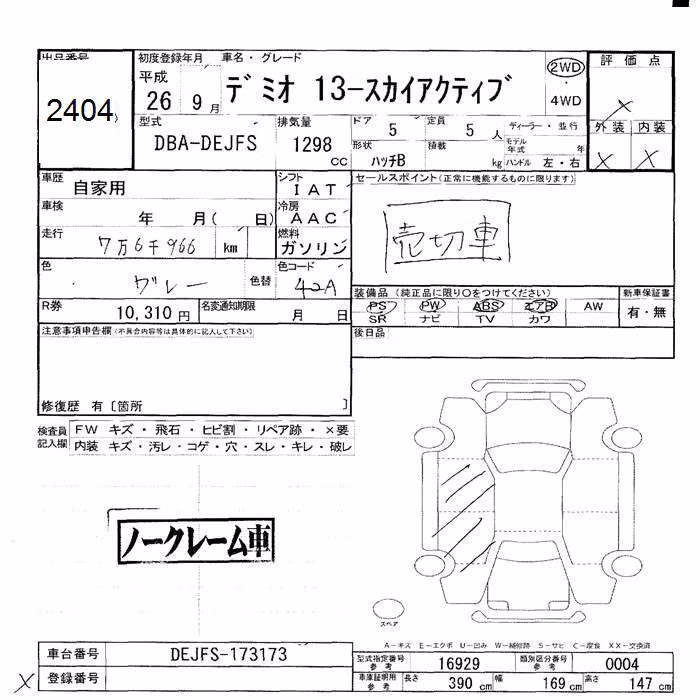 出品番号 初度登録年月 車名・グレード 2WD 評価点
2404 平成 26 9月 デミオ 13-スカイアクティブ 4WD ×
型式 DBA-DEJFS 排気量 1298 cc ドア 5 定員 5 人 ディーラー・並行 外装 内装
形状 ハッチB 積載 kg モデル年式 年 ハンドル 左・右 × ×
車歴 自家用 シフト IAT セールスポイント(正常に機能するものに限ります)
車検 年 月( 日) 冷房 AAC 売切車
走行 7万6千966 km 燃料 ガソリン
色 グレー 色替 色コード 42A
装備品(純正品に限り○をつけてください) 新車保証書
R券 10,310円 名変通知期限 月 日 PS PW ABS エアB AW 有・無
SR ナビ TV カワ
注意事項申告欄(不具合内容等は具体的に記入して下さい) 後日品
修復歴 有〔箇所 〕
検査員記入欄 FW キズ・飛石・ヒビ割・リペア跡・×要
内装 キズ・汚レ・コゲ・穴・スレ・キレ・破レ
ノークレーム車
スペア
A-キズ E-エクボ U-凹み W-補修跡 S-サビ C-腐食 XX-交換済
車台番号 DEJFS-173173 型式指定番号参考 16929 類別区分番号参考 0004
× 登録番号 車庫証明用参考 長さ 390 cm 幅 169 cm 高さ 147 cm